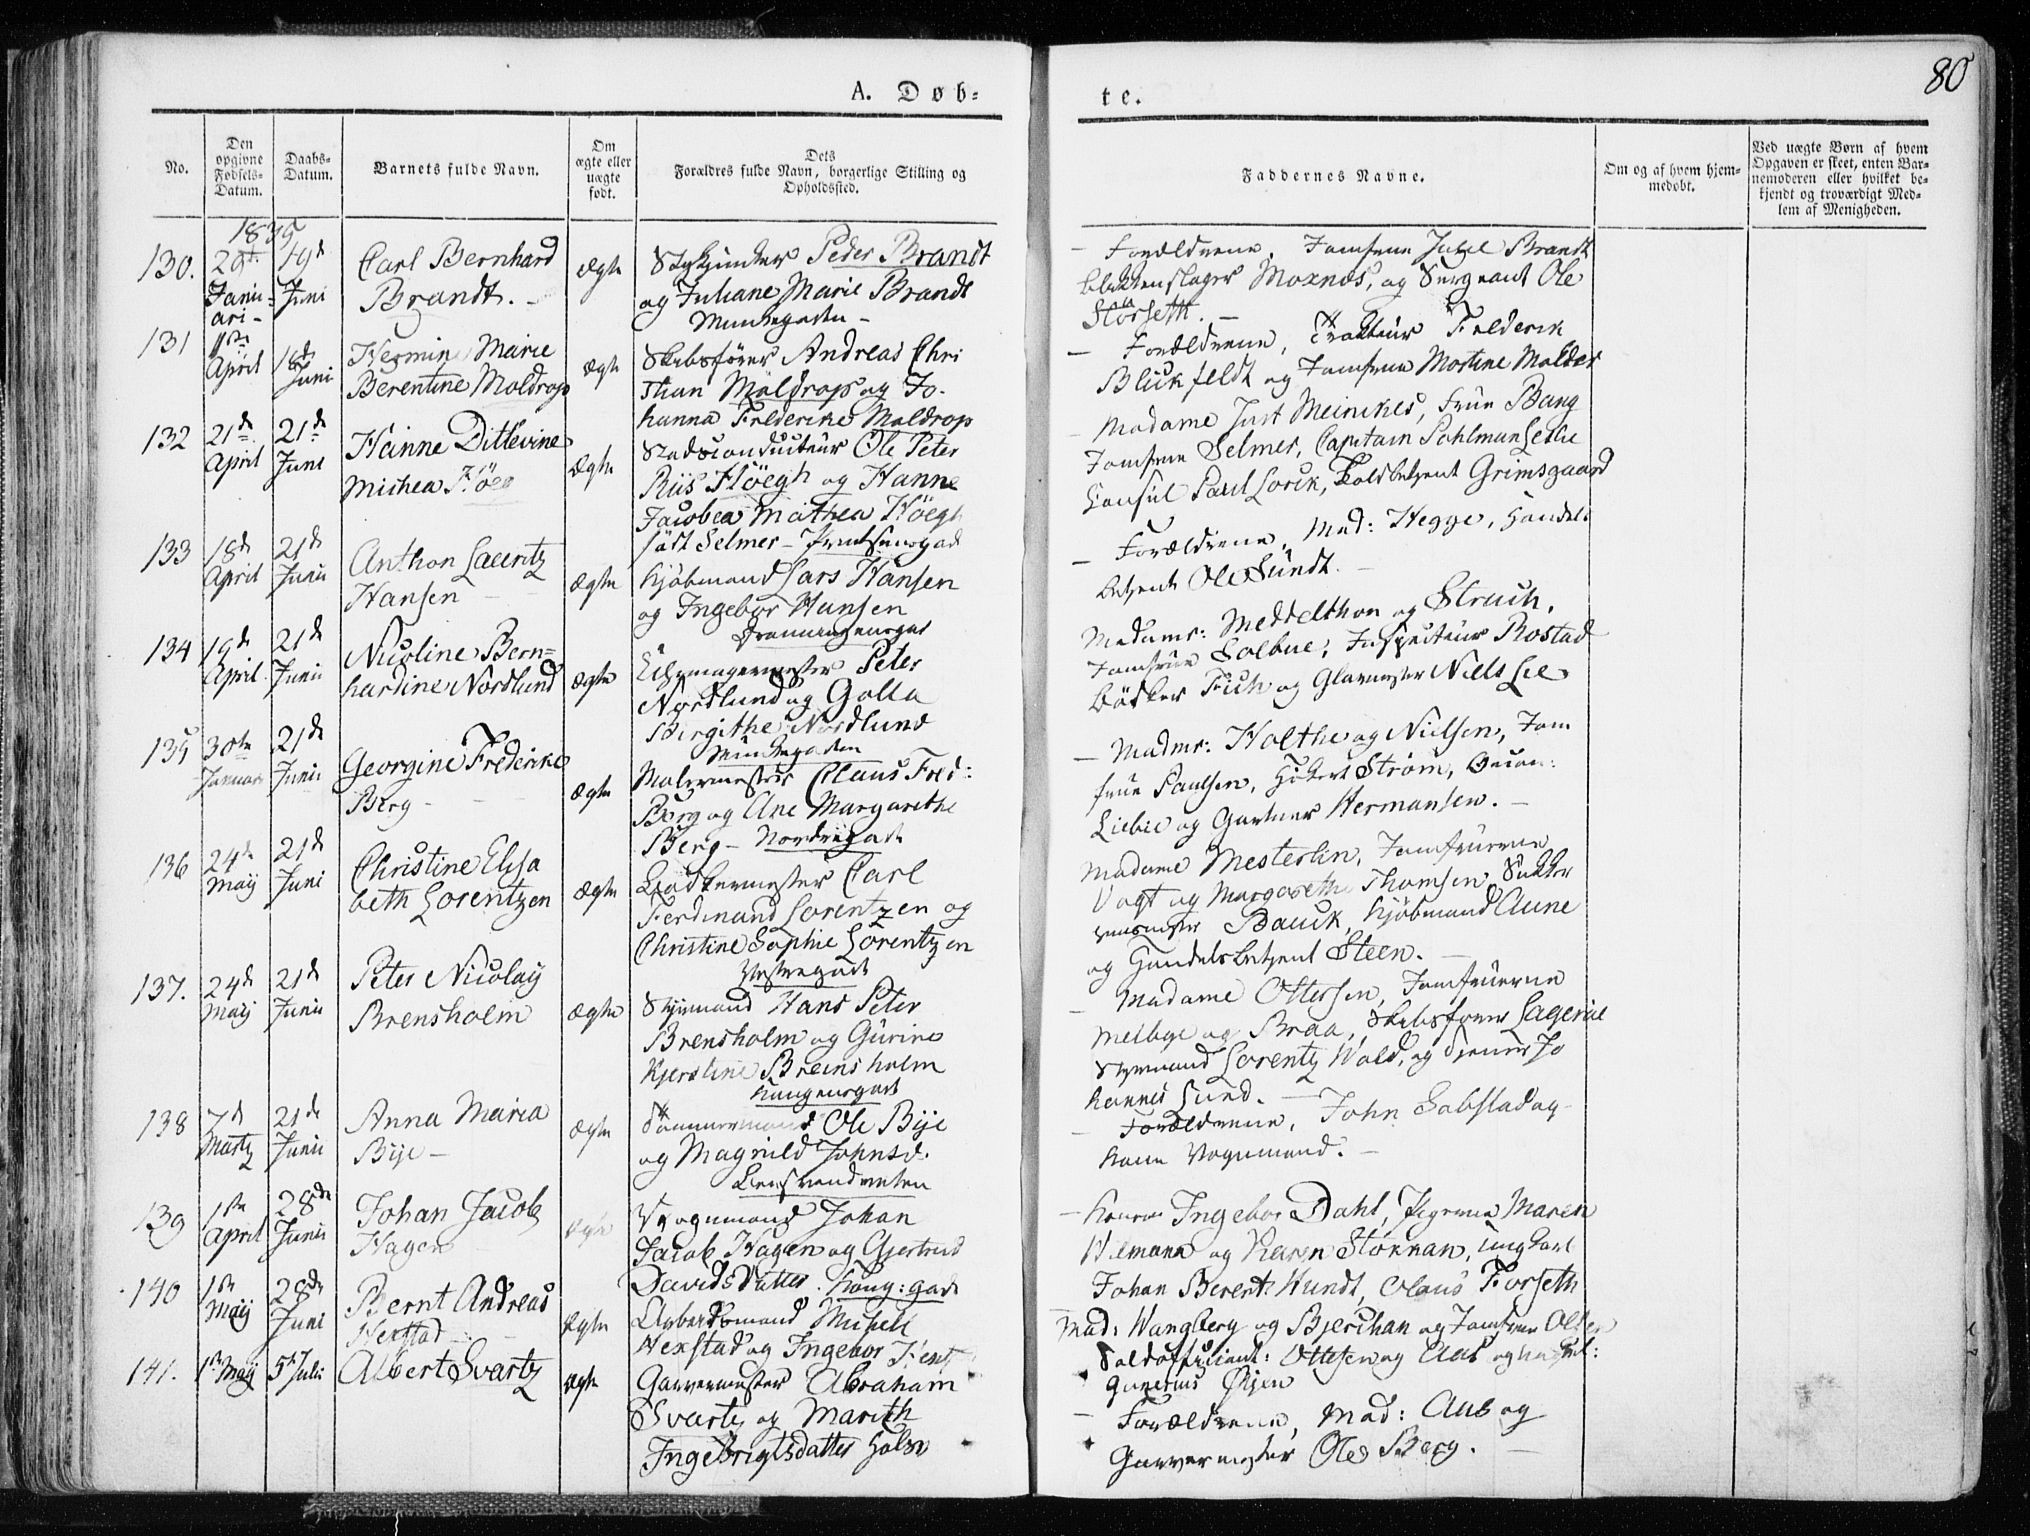 80
A. Døb-
te.
No.
Den
opgivne
Fødsels-
Datum.
Daabs-
Datum.
Barnets fulde Navn.
Om
ægte eller
uægte
født.
Dets
Forældres fulde Navn, borgerlige Stilling og
Opholdssted.
Faddernes Navne.
Om og af hvem hjem-
medøbt.
Ved uægte Børn af hvem
Opgaven er skeet, enten Bar-
nemoderen eller hvilket be-
kjendt og troværdigt Med-
lem af Menigheden.
1835
130.
29de
Janu-
ari-
19d
Juni
Carl Bernhard
Brandt.
Ægte
Peder Brandt
og Juliane Marie Brandt
Munkegaden -
- Forældrene, Jomfrue Brandt
Moxnes, og Sergeant Ole
Störseth. -
131
April
18de
Juni
Hermine Marie
Berentine Moldrop
Ægte
Skibsfører Andreas Chri
stian Moldrop og Jo-
hanna Frederike Moldrop
- Forældrene, Trakteur Frederik
Blickfeldt og Jomfrue Mortine Molder
132
21de
April
21de
Juni
Hanne Ditlevine
Michea Höeg
Ægte
Stadsconducteur Ole Peter
Riis Höegh og Hanne
Jacobea Mathea Höegh
født Selmer -
- Madame Just Meinikes, Frue Bang
Jomfrue Selmer, Capitain
Consul Paul Lorck, Toldbetjent Grimsgaard
133
18de
April
21de
Junii
Anthon Laurentz
Hansen
Ægte
Kjøbmand Lars Hansen
og Ingebor Hansen
Dronningensgad
- Forældrene, Mad: Hegge, Handels
betjent Ole Sundt. -
134
19de
April
21de
Junii
Nicoline Bern-
hardine Nordlund
Ægte
Peter
Nordlund og Golla
Birgithe Nordlund
Munkegaden
Madamr: Meddelthon og Struck,
Jomfrue Solbue, Inspecteur Rostad
Bödker Fich og Glarmester Niels Lie
135
30te
Januar
21de
Junii
Georgine Frederike
Berg -
Ægte
Malermester Claus Fred:
Berg og Ane Margarethe
Berg - Nordregade
- Madmr: Holthe og Nielsen, Jom
frue Paulsen, Strøm,
Liebie og Gartner Hermansen. -
136
24de
Maij
21de
Juni
Christine Elisa
beth Lorentzen
Ægte
Carl
Ferdinand Lorentzen og
Christine Sophie Lorentzen
Madame Mesterlin, Jomfruerne
Vogt og Margarethe Thomsen
Bauck, Kjøbmand Aune
og Handelsbetjent Steen. -
137.
24de
Maij
21de
Junii
Peter Nicolaij
Brensholm
Ægte
Styrmand Hans Peter
Brensholm og Gurine
Kjerstine Breinsholm
Kongensgade
- Madame Ottersen, Jomfruerne
Melbye og Braa, Skibsfører
Styrmand Lorentz Wold, og Jo
hannes Lund. -
138
7d
Martz
21de
Junii
Anna Maria
Bije -
Ægte
Tömmermand Ole Bije
og Magnild Johnsd.
- Forældrene, John Sabstad og
Vognmand. -
139
1te
April
28de
Junii
Johan Jacob
Hagen
Ægte
Vognmand Johan
Jacob Hagen og Gjertrud
Davids Datter. Kong: gade
- Ingebor Dahl, Pigerne Maren
og Karen Stökkan, ung Karl
Johan Berent Wundt, Claus Forseth
140
1te
Maij
28de
Juni
Bernt Andreas
Hexstad
Ægte
Arbeidsmand Michell
Hexstad og Ingebor
Mad: Wangberg og Bjerchan og Jomfrue
Ottesen og Aas
141.
1te Maij
5te Juli
Albert Svartz
Ægte
Garvermester Abraham
Svartz og Marith
IngeBrigtsdatter
- Forældrene, Mad: Aas og
Garvermester Ole Berg. -